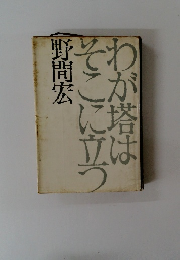 わが塔は
そこに立つ
野間宏